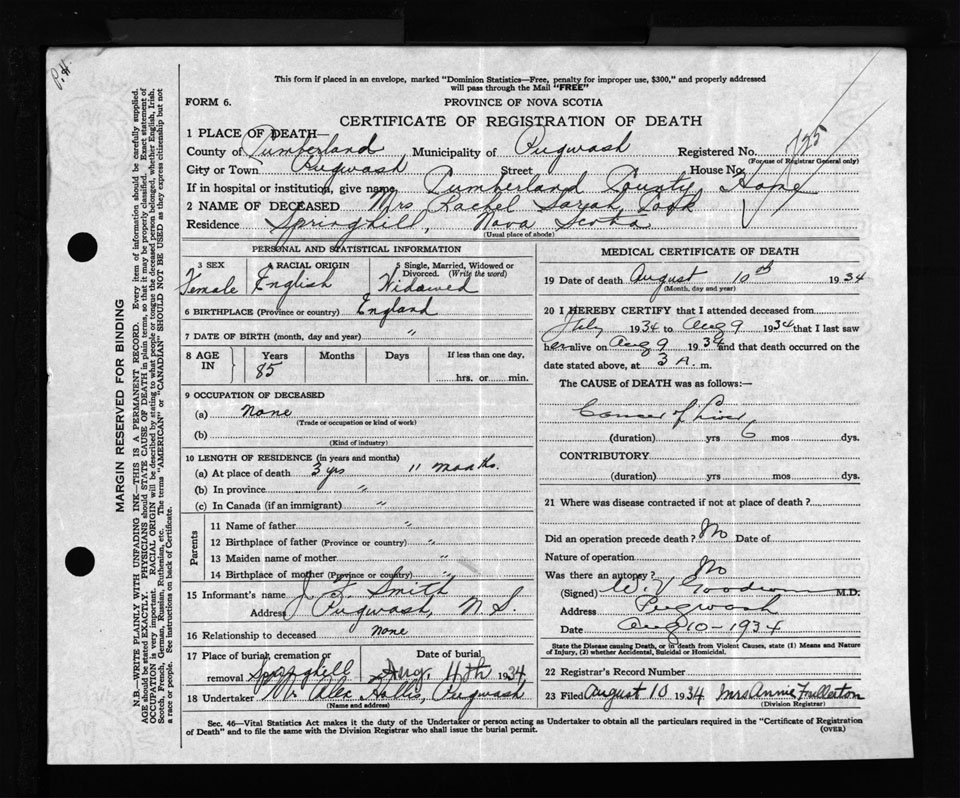 P.H.
This form if placed in an envelope, marked "Dominion Statistics—Free, penalty for improper use, $300," and properly addressed
will pass through the Mail "FREE"
FORM 6.
PROVINCE OF NOVA SCOTIA
CERTIFICATE OF REGISTRATION OF DEATH
1 PLACE OF DEATH—
County of Cumberland Municipality of Pugwash Registered No. 725
(For use of Registrar General only)
City or Town Pugwash Street House No.
If in hospital or institution, give name Cumberland County Home
2 NAME OF DECEASED Mrs Rachel Sarah
Residence Springhill, Nova Scotia
(Usual place of abode)
PERSONAL AND STATISTICAL INFORMATION
3 SEX
Female
4 RACIAL ORIGIN
English
5 Single, Married, Widowed or
Divorced. (Write the word)
Widowed
6 BIRTHPLACE (Province or country) England
7 DATE OF BIRTH (month, day and year) "
8 AGE IN
Years Months Days If less than one day,
85
hrs. or min.
9 OCCUPATION OF DECEASED
(a) none
(Trade or occupation or kind of work)
(b)
(Kind of industry)
10 LENGTH OF RESIDENCE (in years and months)
(a) At place of death 3 yrs 11 months.
(b) In province "
(c) In Canada (if an immigrant) "
Parents
11 Name of father "
12 Birthplace of father (Province or country) "
13 Maiden name of mother "
14 Birthplace of mother (Province or country) "
15 Informant's name J. F. Smith
Address Pugwash, N S.
16 Relationship to deceased none
17 Place of burial, cremation or removal Springhill
Date of burial Aug. 11th 1934
18 Undertaker Mr Alec Pugwash
(Name and address)
MEDICAL CERTIFICATE OF DEATH
19 Date of death August 10th 1934
(Month, day and year)
20 I HEREBY CERTIFY that I attended deceased from
July 1934 to Aug 9 1934 that I last saw
her alive on Aug 9 1934 and that death occurred on the
date stated above, at 3 A. m.
The CAUSE of DEATH was as follows:—
Cancer of Liver
(duration) yrs 6 mos dys.
CONTRIBUTORY
(duration) yrs mos dys.
21 Where was disease contracted if not at place of death?
Did an operation precede death? No Date of
Nature of operation
Was there an autopsy? No
(Signed) W. V Goodwin M.D.
Address Pugwash
Date Aug 10-1934
State the Disease causing Death, or in death from Violent Causes, state (1) Means and Nature
of Injury, (2) whether Accidental, Suicidal or Homicidal.
22 Registrar's Record Number
23 Filed August 10 1934 Mrs Annie Fullerton
(Division Registrar)
Sec. 46—Vital Statistics Act makes it the duty of the Undertaker or person acting as Undertaker to obtain all the particulars required in the "Certificate of Registration
of Death" and to file the same with the Division Registrar who shall issue the burial permit.
(OVER)
MARGIN RESERVED FOR BINDING
N.B.—WRITE PLAINLY WITH UNFADING INK—THIS IS A PERMANENT RECORD. Every item of information should be carefully supplied.
AGE should be stated EXACTLY. PHYSICIANS should STATE CAUSE OF DEATH in plain terms, so that it may be properly classified. Exact statement of
OCCUPATION is very important. RACIAL ORIGIN will be described by stating to what people or tongue the deceased person belonged, whether English, Irish,
Scotch, French, German, Russian, Ruthenian, etc. The terms "AMERICAN" or "CANADIAN" SHOULD NOT BE USED as they express citizenship but not
a race or people. See instructions on back of Certificate.